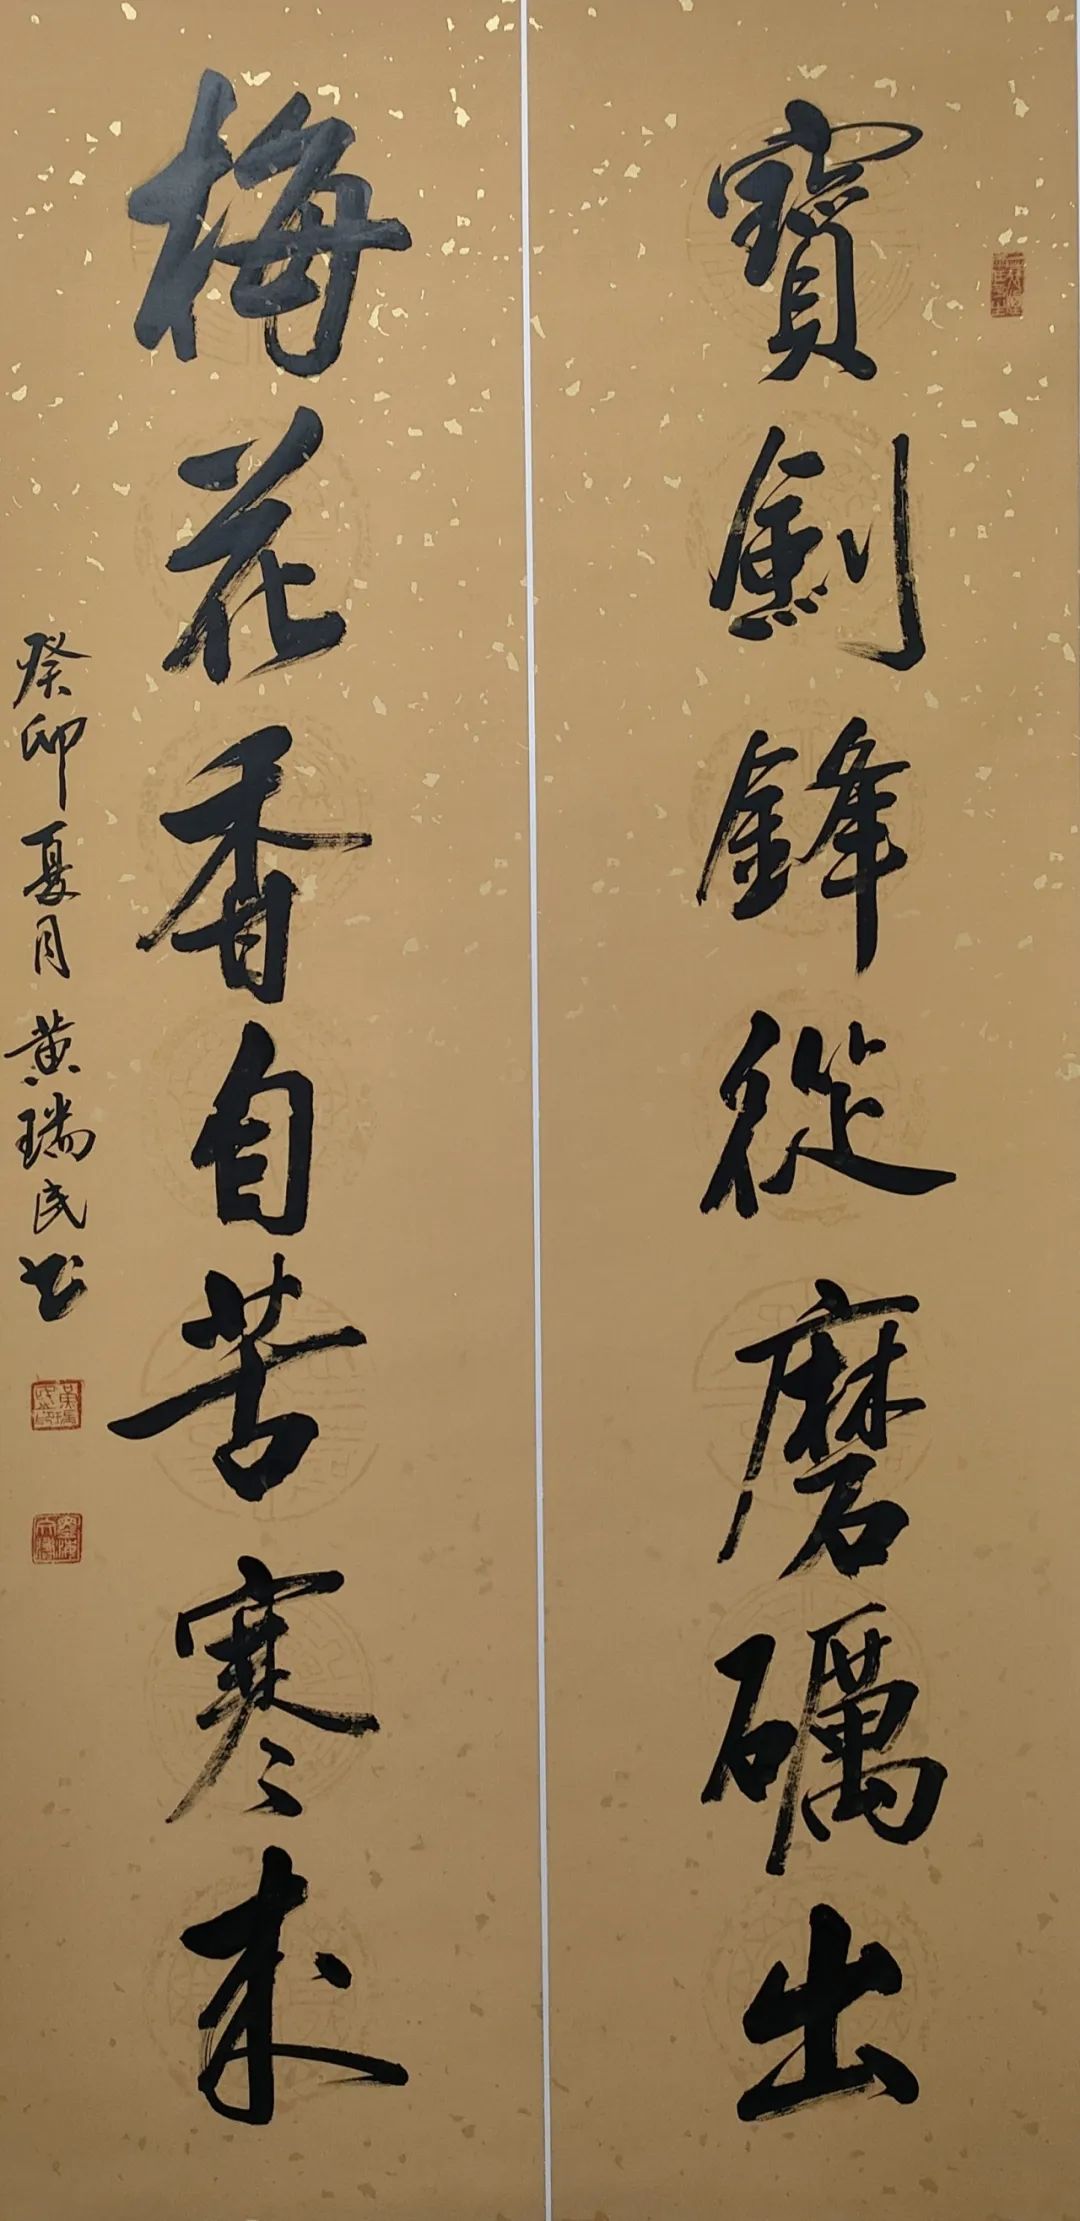 寶劍鋒從磨礪出
梅花香自苦寒來
癸卯夏月黃瑞民书